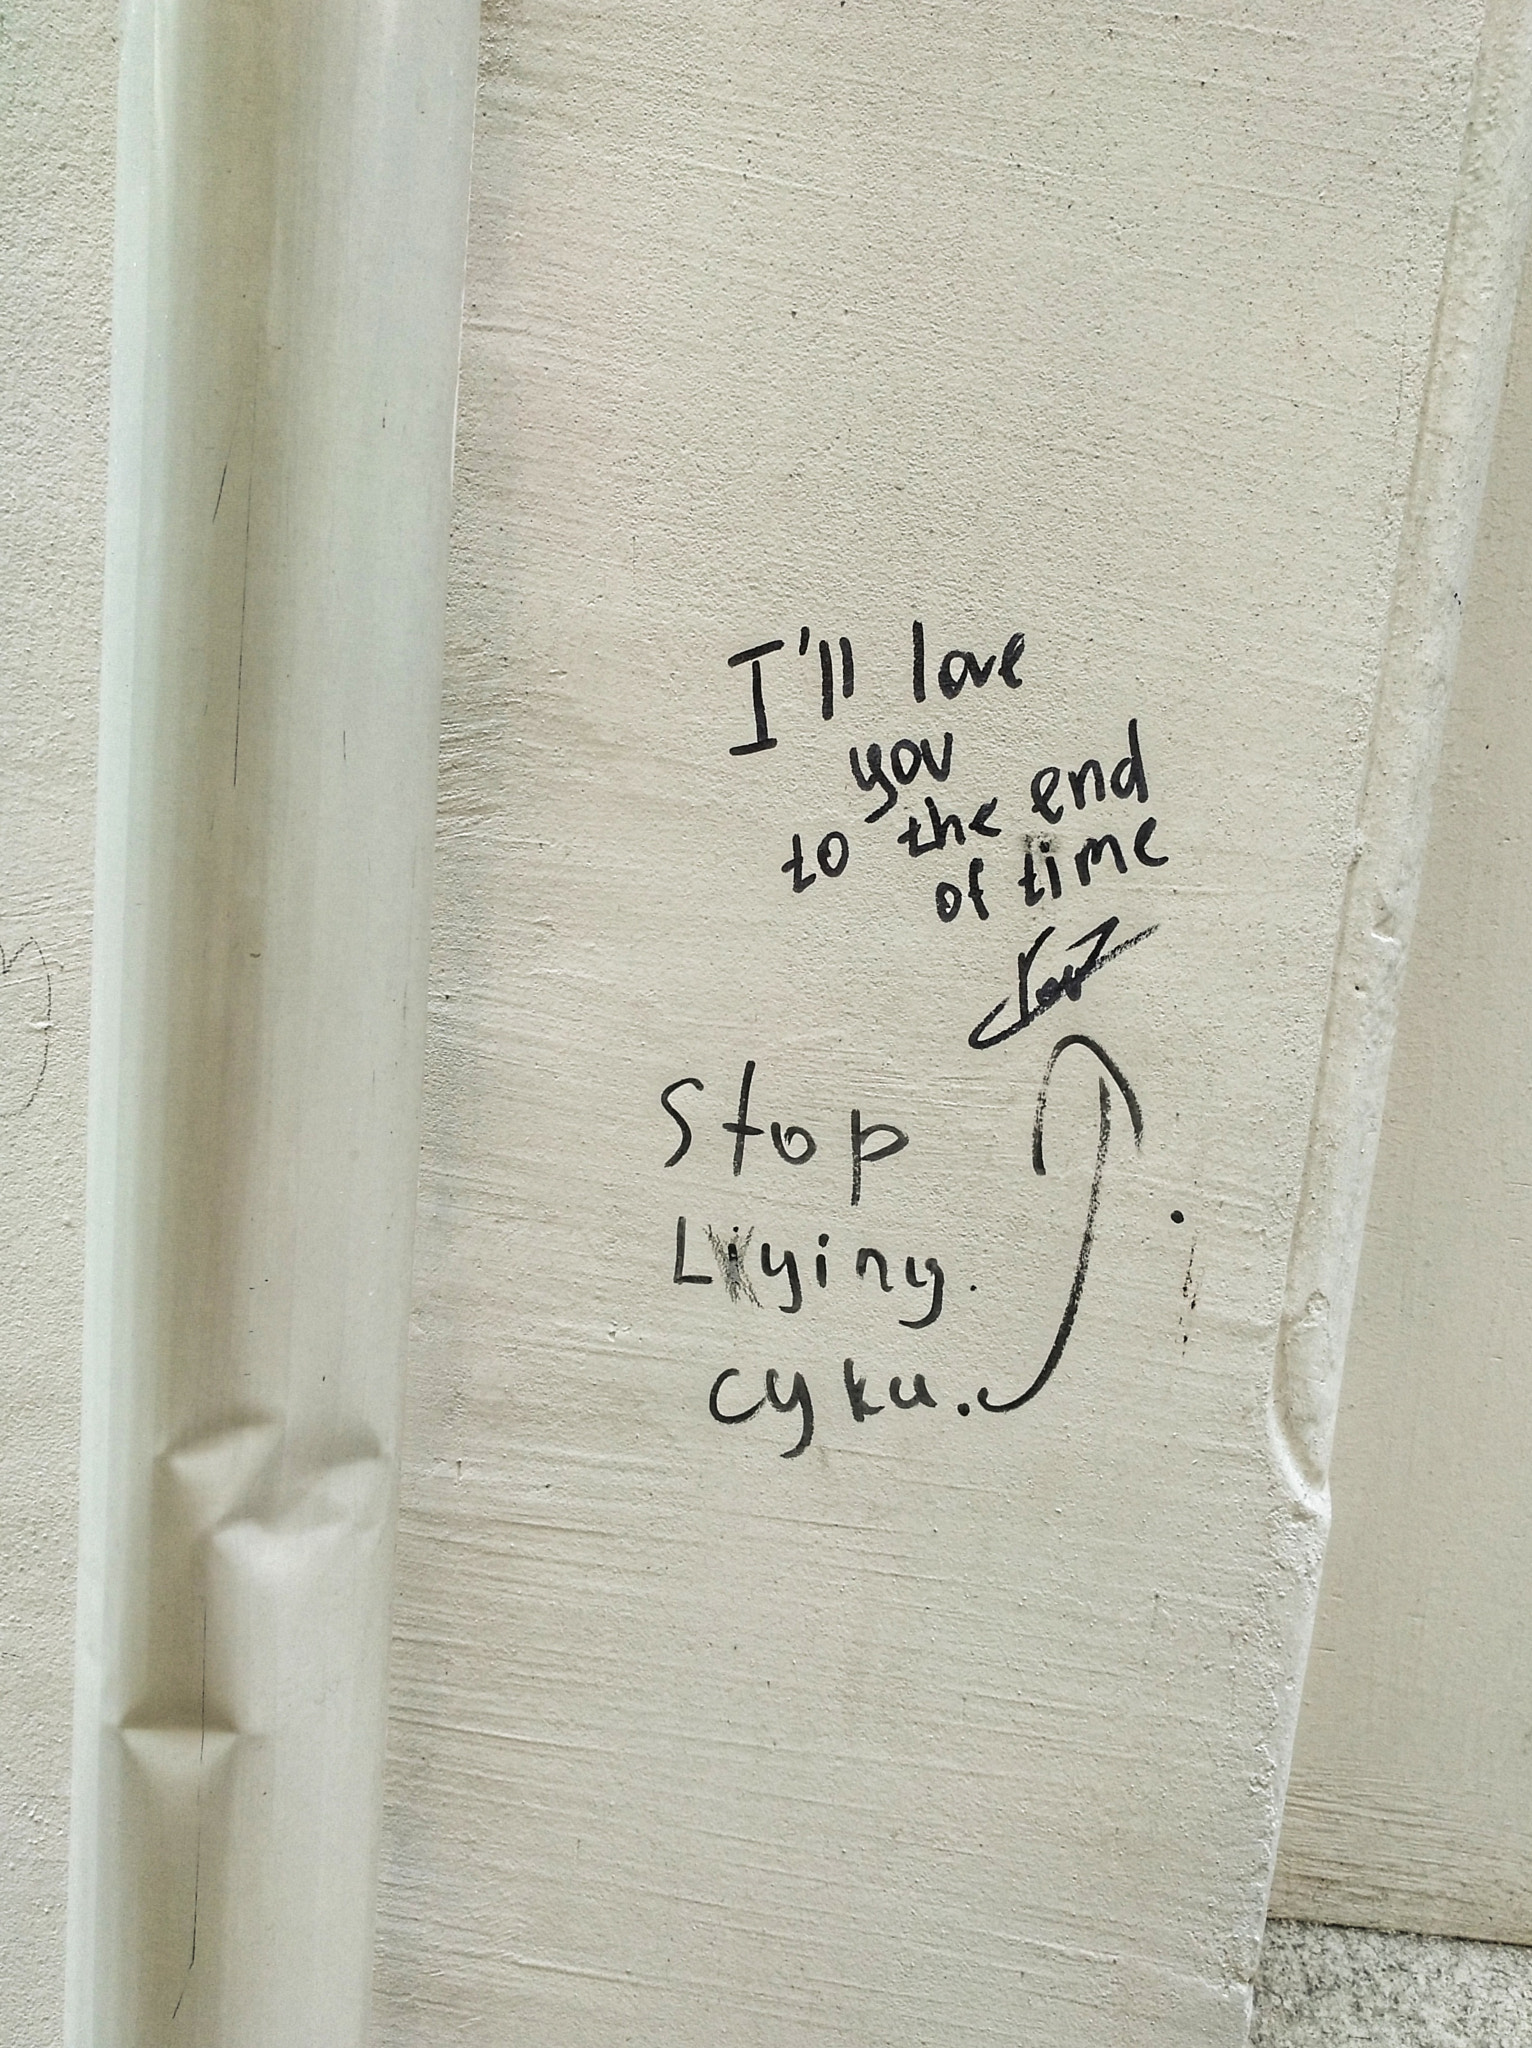 I'll love
you
to the end
of time
Stop
Lying.
суки.